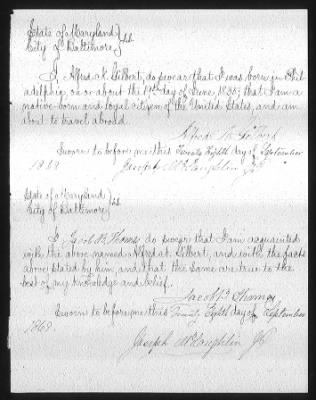 State of Maryland } ss.
City of Baltimore }
I, Alfred H. Gilbert, do swear that I was born in Phil-
adelphia, on or about the day of June, 1835; that I am a
native born and loyal citizen of the United States, and am
about to travel abroad.
Alfred H. Gilbert
Sworn to before me this Twenty Eighth day of September
1869
Joseph McLaughlin JP
State of Maryland } ss.
City of Baltimore }
I Jacob B. Thomas do swear that I am acquainted
with the above named Alfred H. Gilbert, and with the facts
above stated by him, and that the same are true to the
best of my knowledge and belief.
Jacob B Thomas
Sworn to before me this Twenty Eighth day of September
1869.
Joseph McLaughlin JP